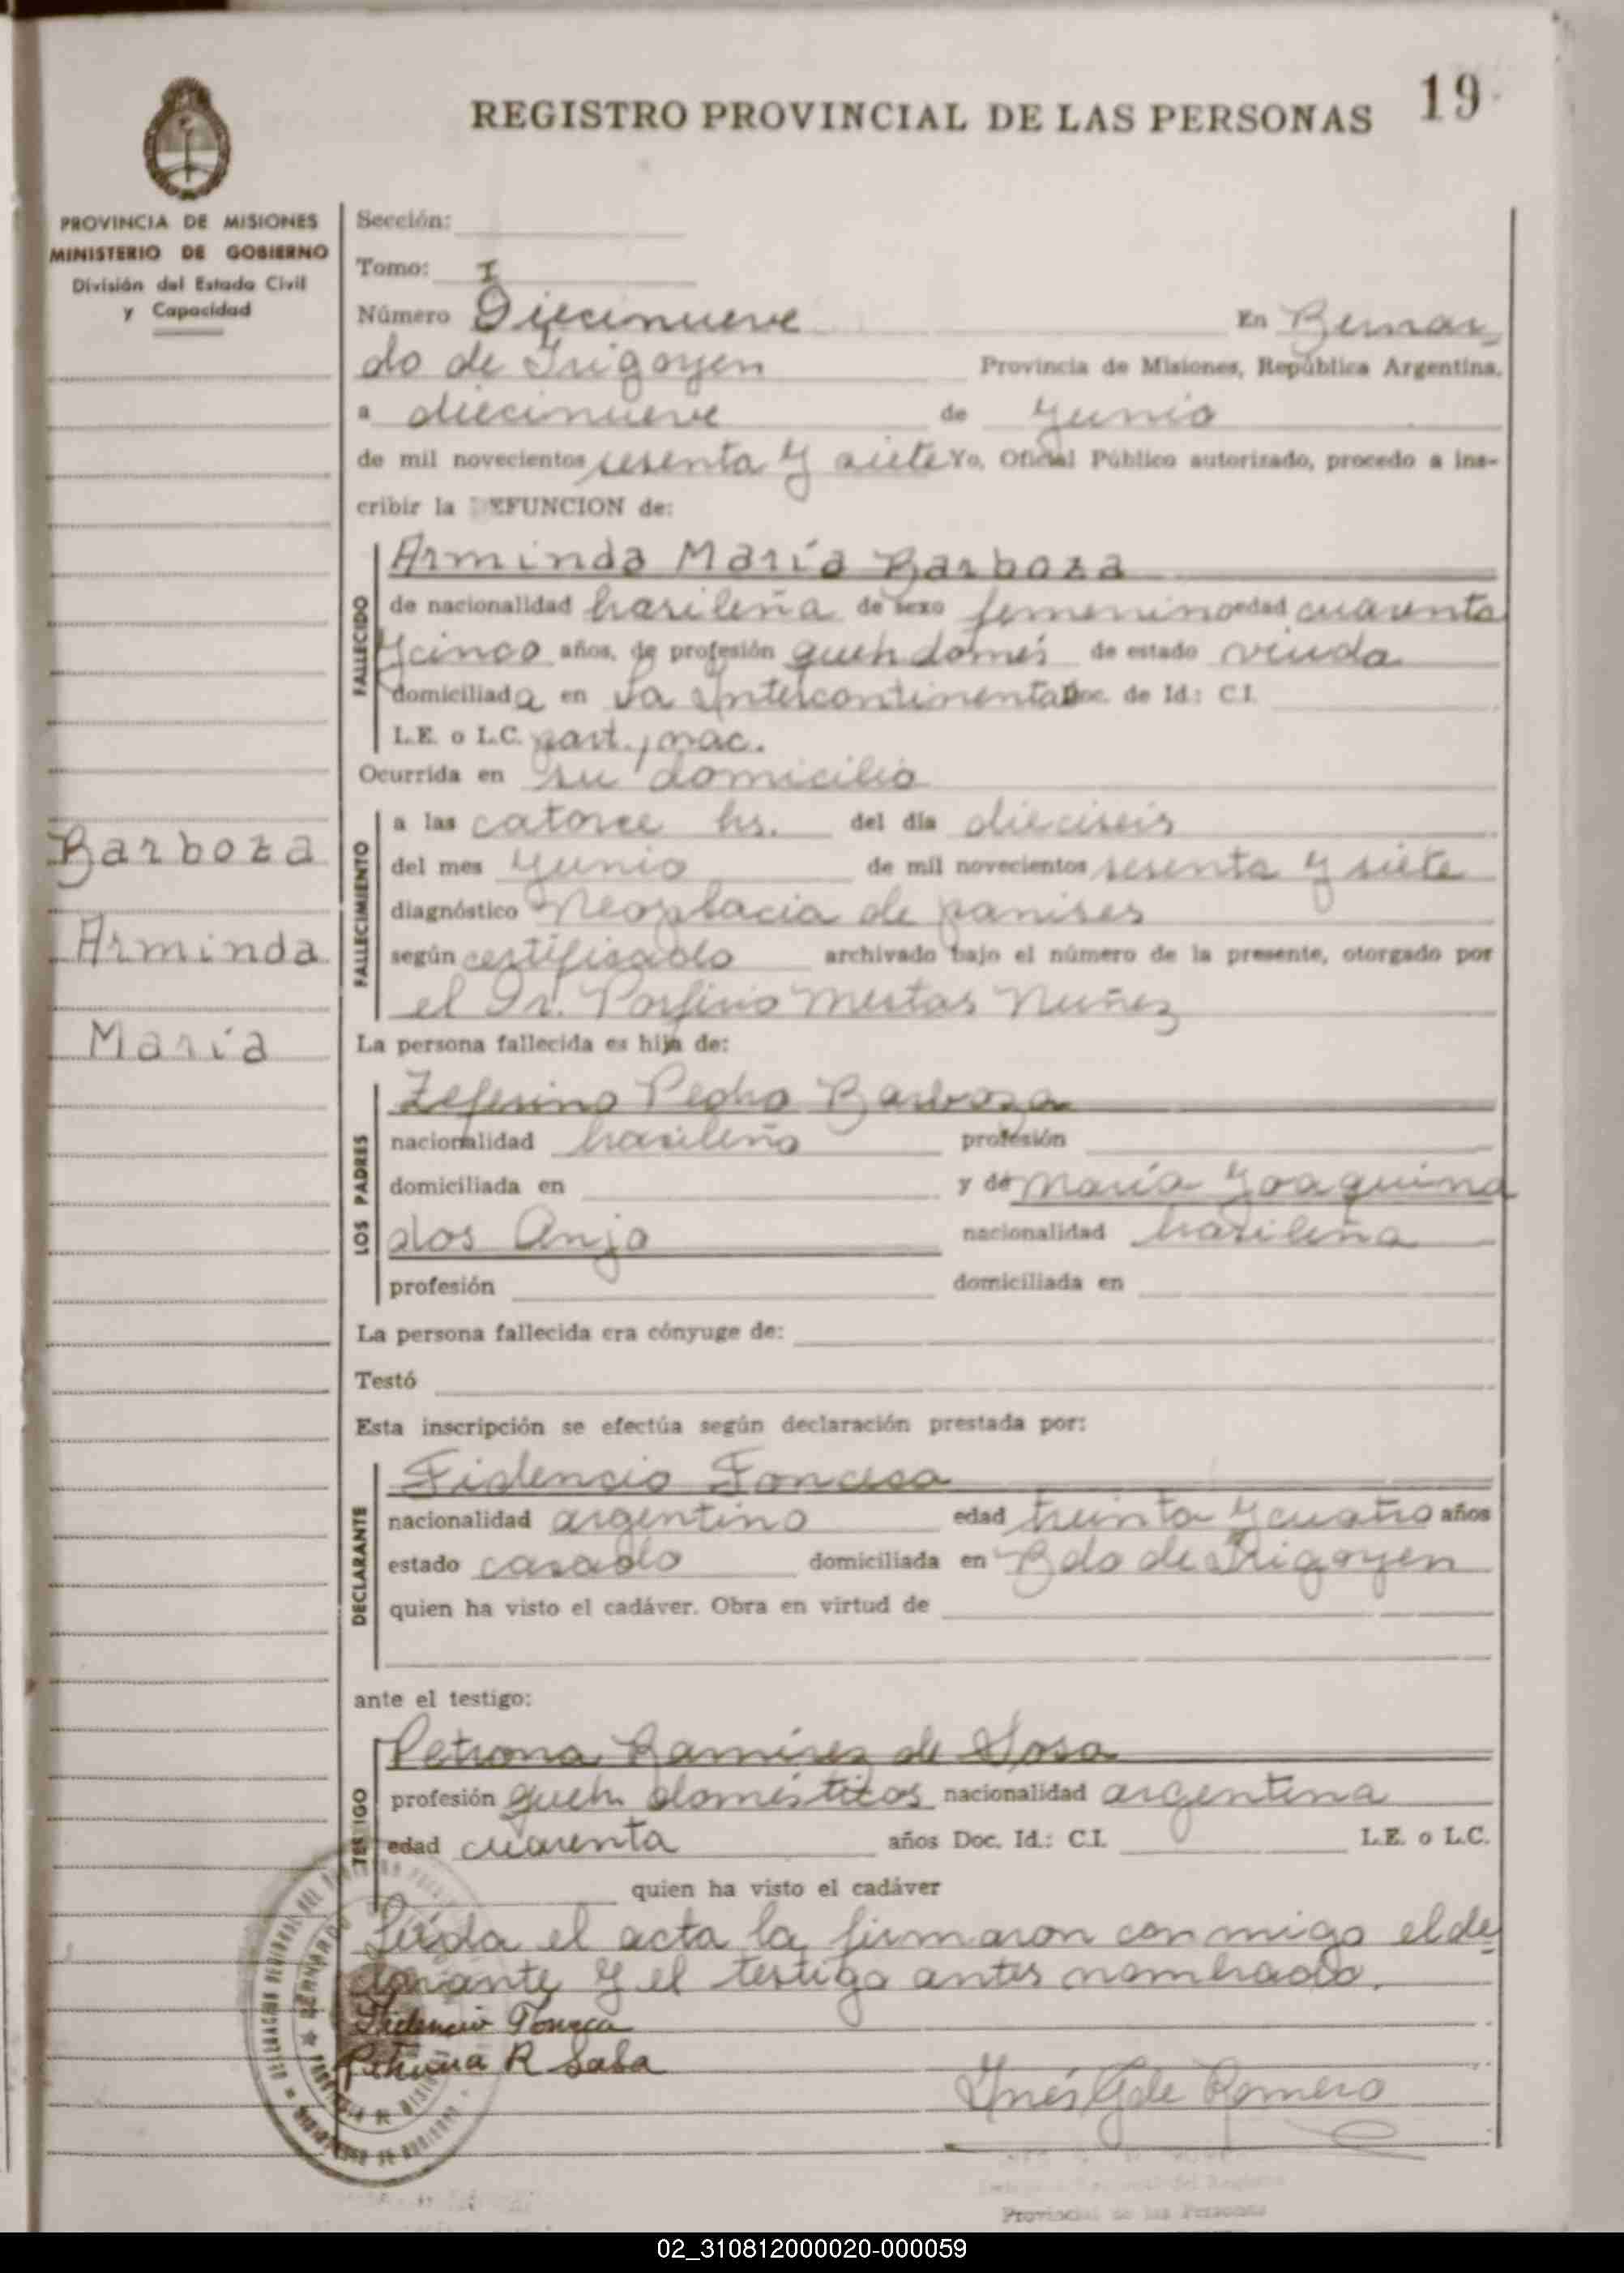 REGISTRO PROVINCIAL DE LAS PERSONAS 19
PROVINCIA DE MISIONES
MINISTERIO DE GOBIERNO
División del Estado Civil
y Capacidad
Barboza
Arminda
María
Sección:
Tomo: I
Número Diecinueve En Bernar
do de Irigoyen Provincia de Misiones, República Argentina,
a diecinueve de Junio
de mil novecientos sesenta y siete Yo, Oficial Público autorizado, procedo a ins-
cribir la DEFUNCION de:
FALLECIDO
Arminda María Barboza
de nacionalidad brasileña de sexo femenino edad cuarenta
y cinco años, de profesión queh domés de estado viuda
domiciliada en La Intercontinental Doc. de Id.: C.I.
L.E. o L.C.
Ocurrida en su domicilio
FALLECIMIENTO
a las catorce hs. del día dieciseis
del mes Junio de mil novecientos sesenta y siete
diagnóstico Neoplacia de
según certificado archivado bajo el número de la presente, otorgado por
el Dr. Porfirio Mestas Nuñez
La persona fallecida es hija de:
LOS PADRES
Zeferino Pedro Barboza
nacionalidad brasileño profesión
domiciliada en y de María Joaquina
dos Anjo nacionalidad brasileña
profesión domiciliada en
La persona fallecida era cónyuge de:
Testó
Esta inscripción se efectúa según declaración prestada por:
DECLARANTE
Fidencio Fonceca
nacionalidad argentino edad treinta y cuatro años
estado casado domiciliada en Bdo de Irigoyen
quien ha visto el cadáver. Obra en virtud de
ante el testigo:
TESTIGO
Petrona Ramírez de Sosa
profesión queh. domésticos nacionalidad argentina
edad cuarenta años Doc. Id.: C.I. L.E. o L.C.
quien ha visto el cadáver
Leída el acta la firmaron con migo el de
clarante y el testigo antes nombrado.
Fidencio Fonceca
Petrona R
Inés G de Romero
Provincial de las Personas
02_310812000020-000059